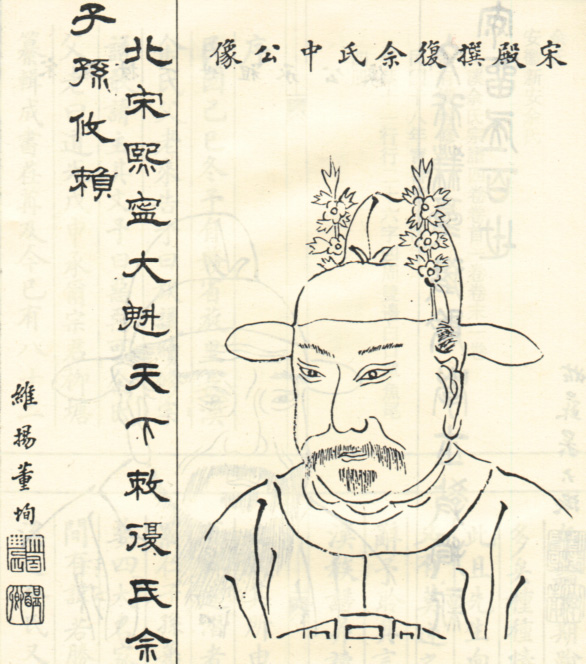 宋殿撰復佘氏中公像
北宋熙寍大魁天下敕復氏佘
子孫攸賴
維揚董恂